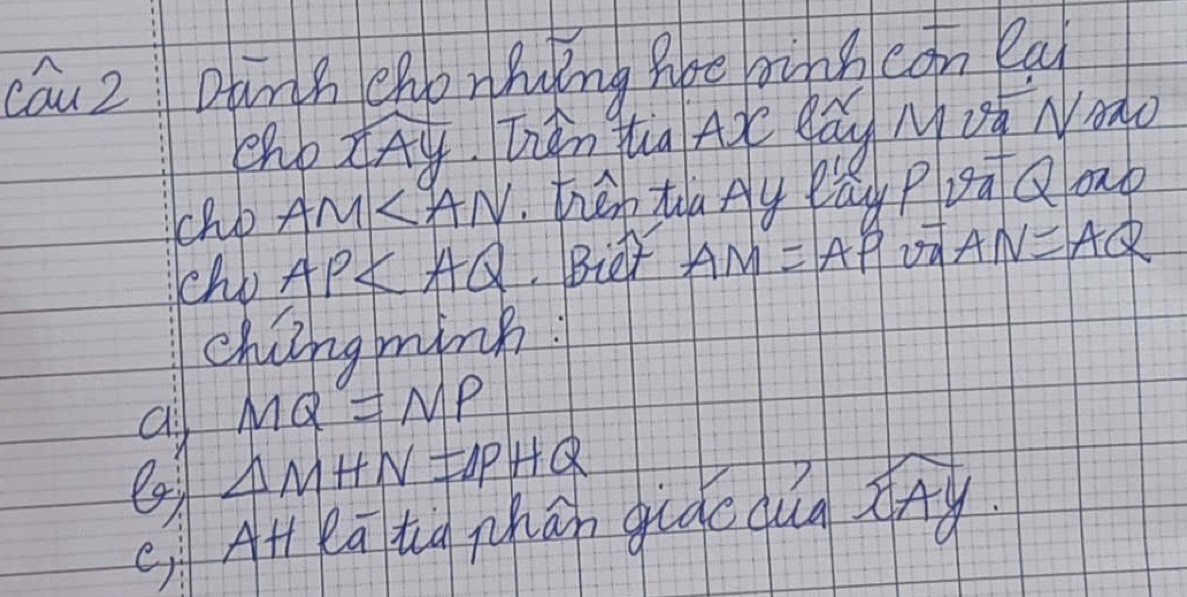 Câu 2 Dành cho những học sinh còn lại
cho xAy. Trên tia Ax lấy M và N sao
cho AM < AN. Trên tia Ay lấy P và Q sao
cho AP < AQ. Biết AM = AP và AN = AQ
chứng minh:
a, MQ = NP
b, ΔMHN = ΔPHQ
c, AH là tia phân giác của xAy.